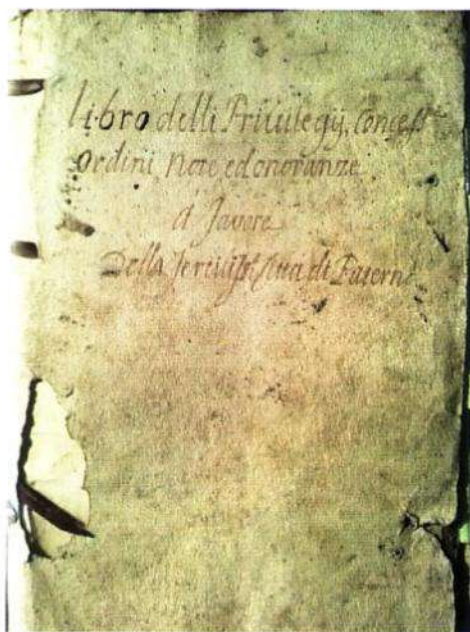 Libro delli Priuilegij, Concess
Ordini, Note ed onoranze
à favore
Della Città di Paternò